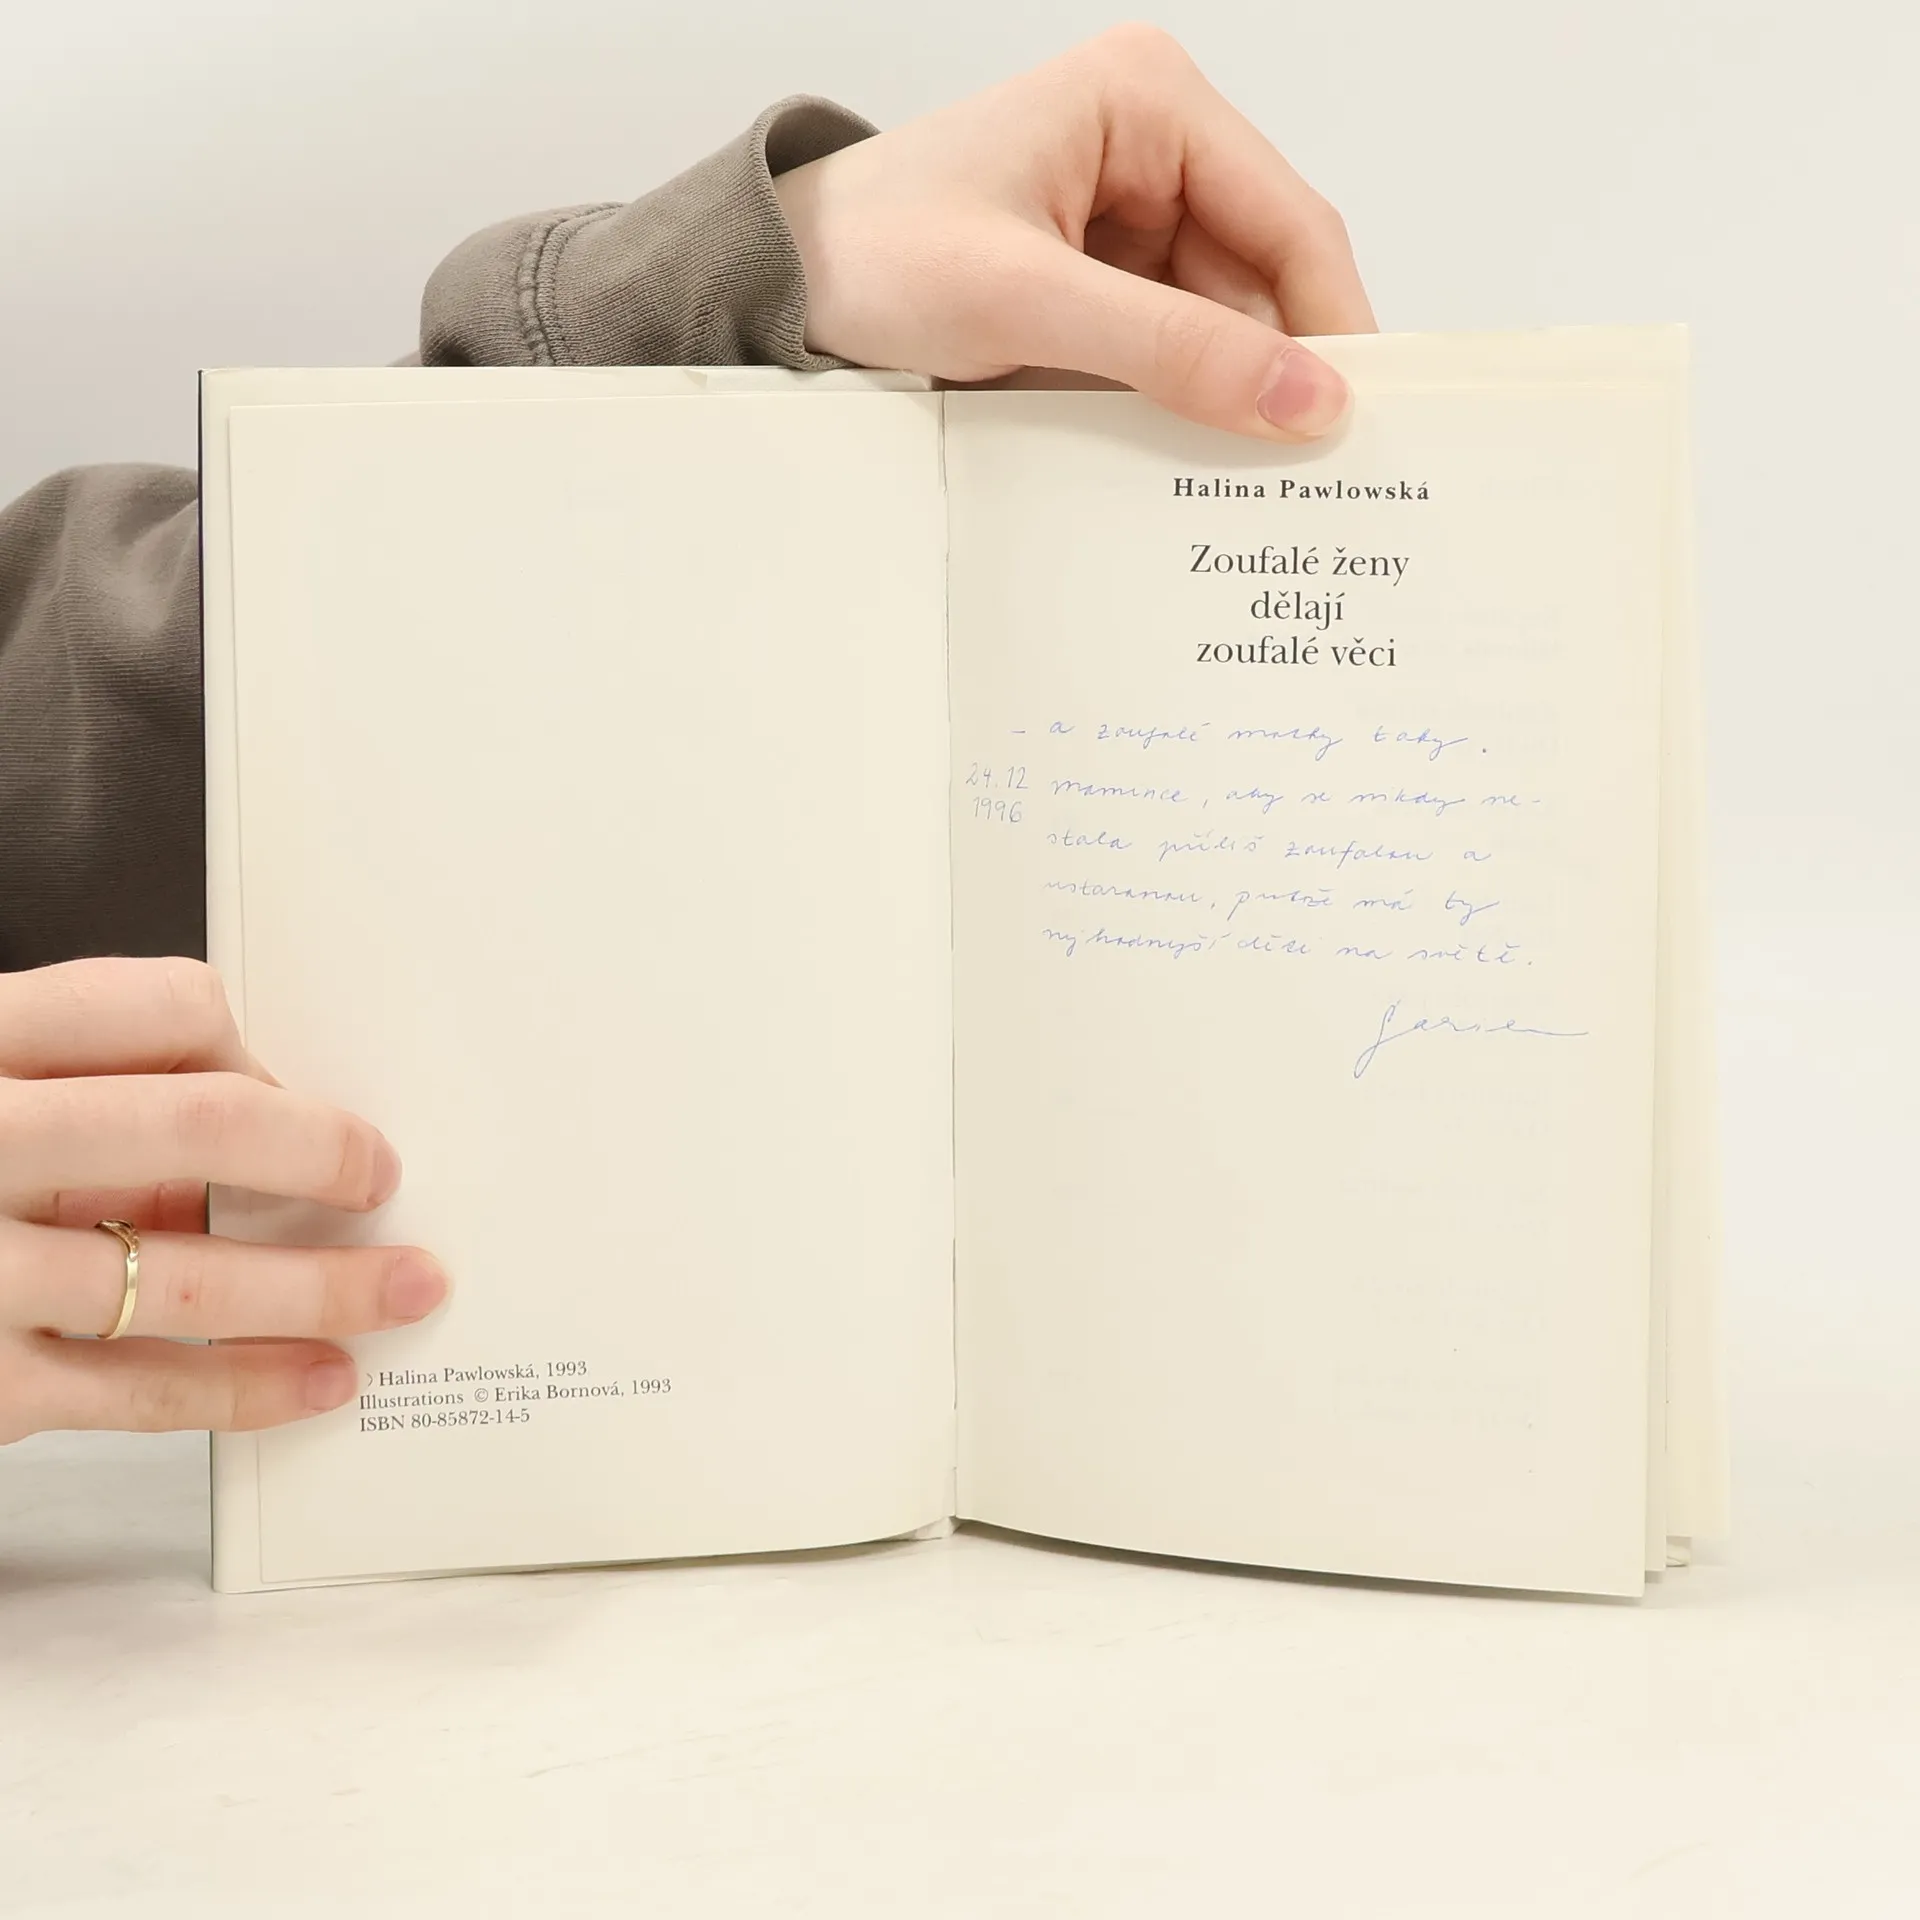 Halina Pawlowská
Zoufalé ženy
dělají
zoufalé věci
– a zoufalé matky taky.
24.12
1996
mamince, aby se nikdy ne-
stala příliš zoufalou a
ustaranou, protože má ty
nejhodnější děti na světě.
) Halina Pawlowská, 1993
Illustrations © Erika Bornová, 1993
ISBN 80-85872-14-5